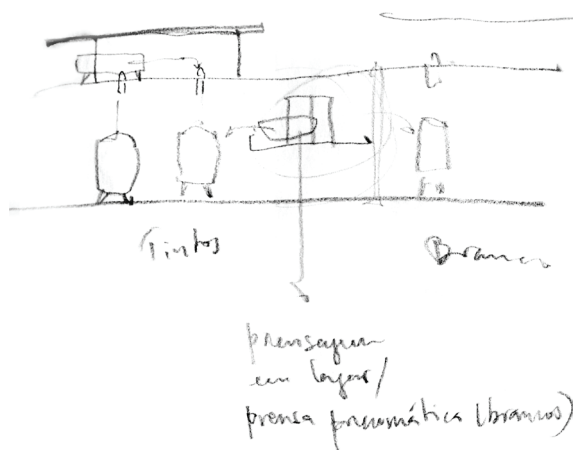 Tintos
Brancos
prensagem
em lagar/
prensa pneumática (brancos)